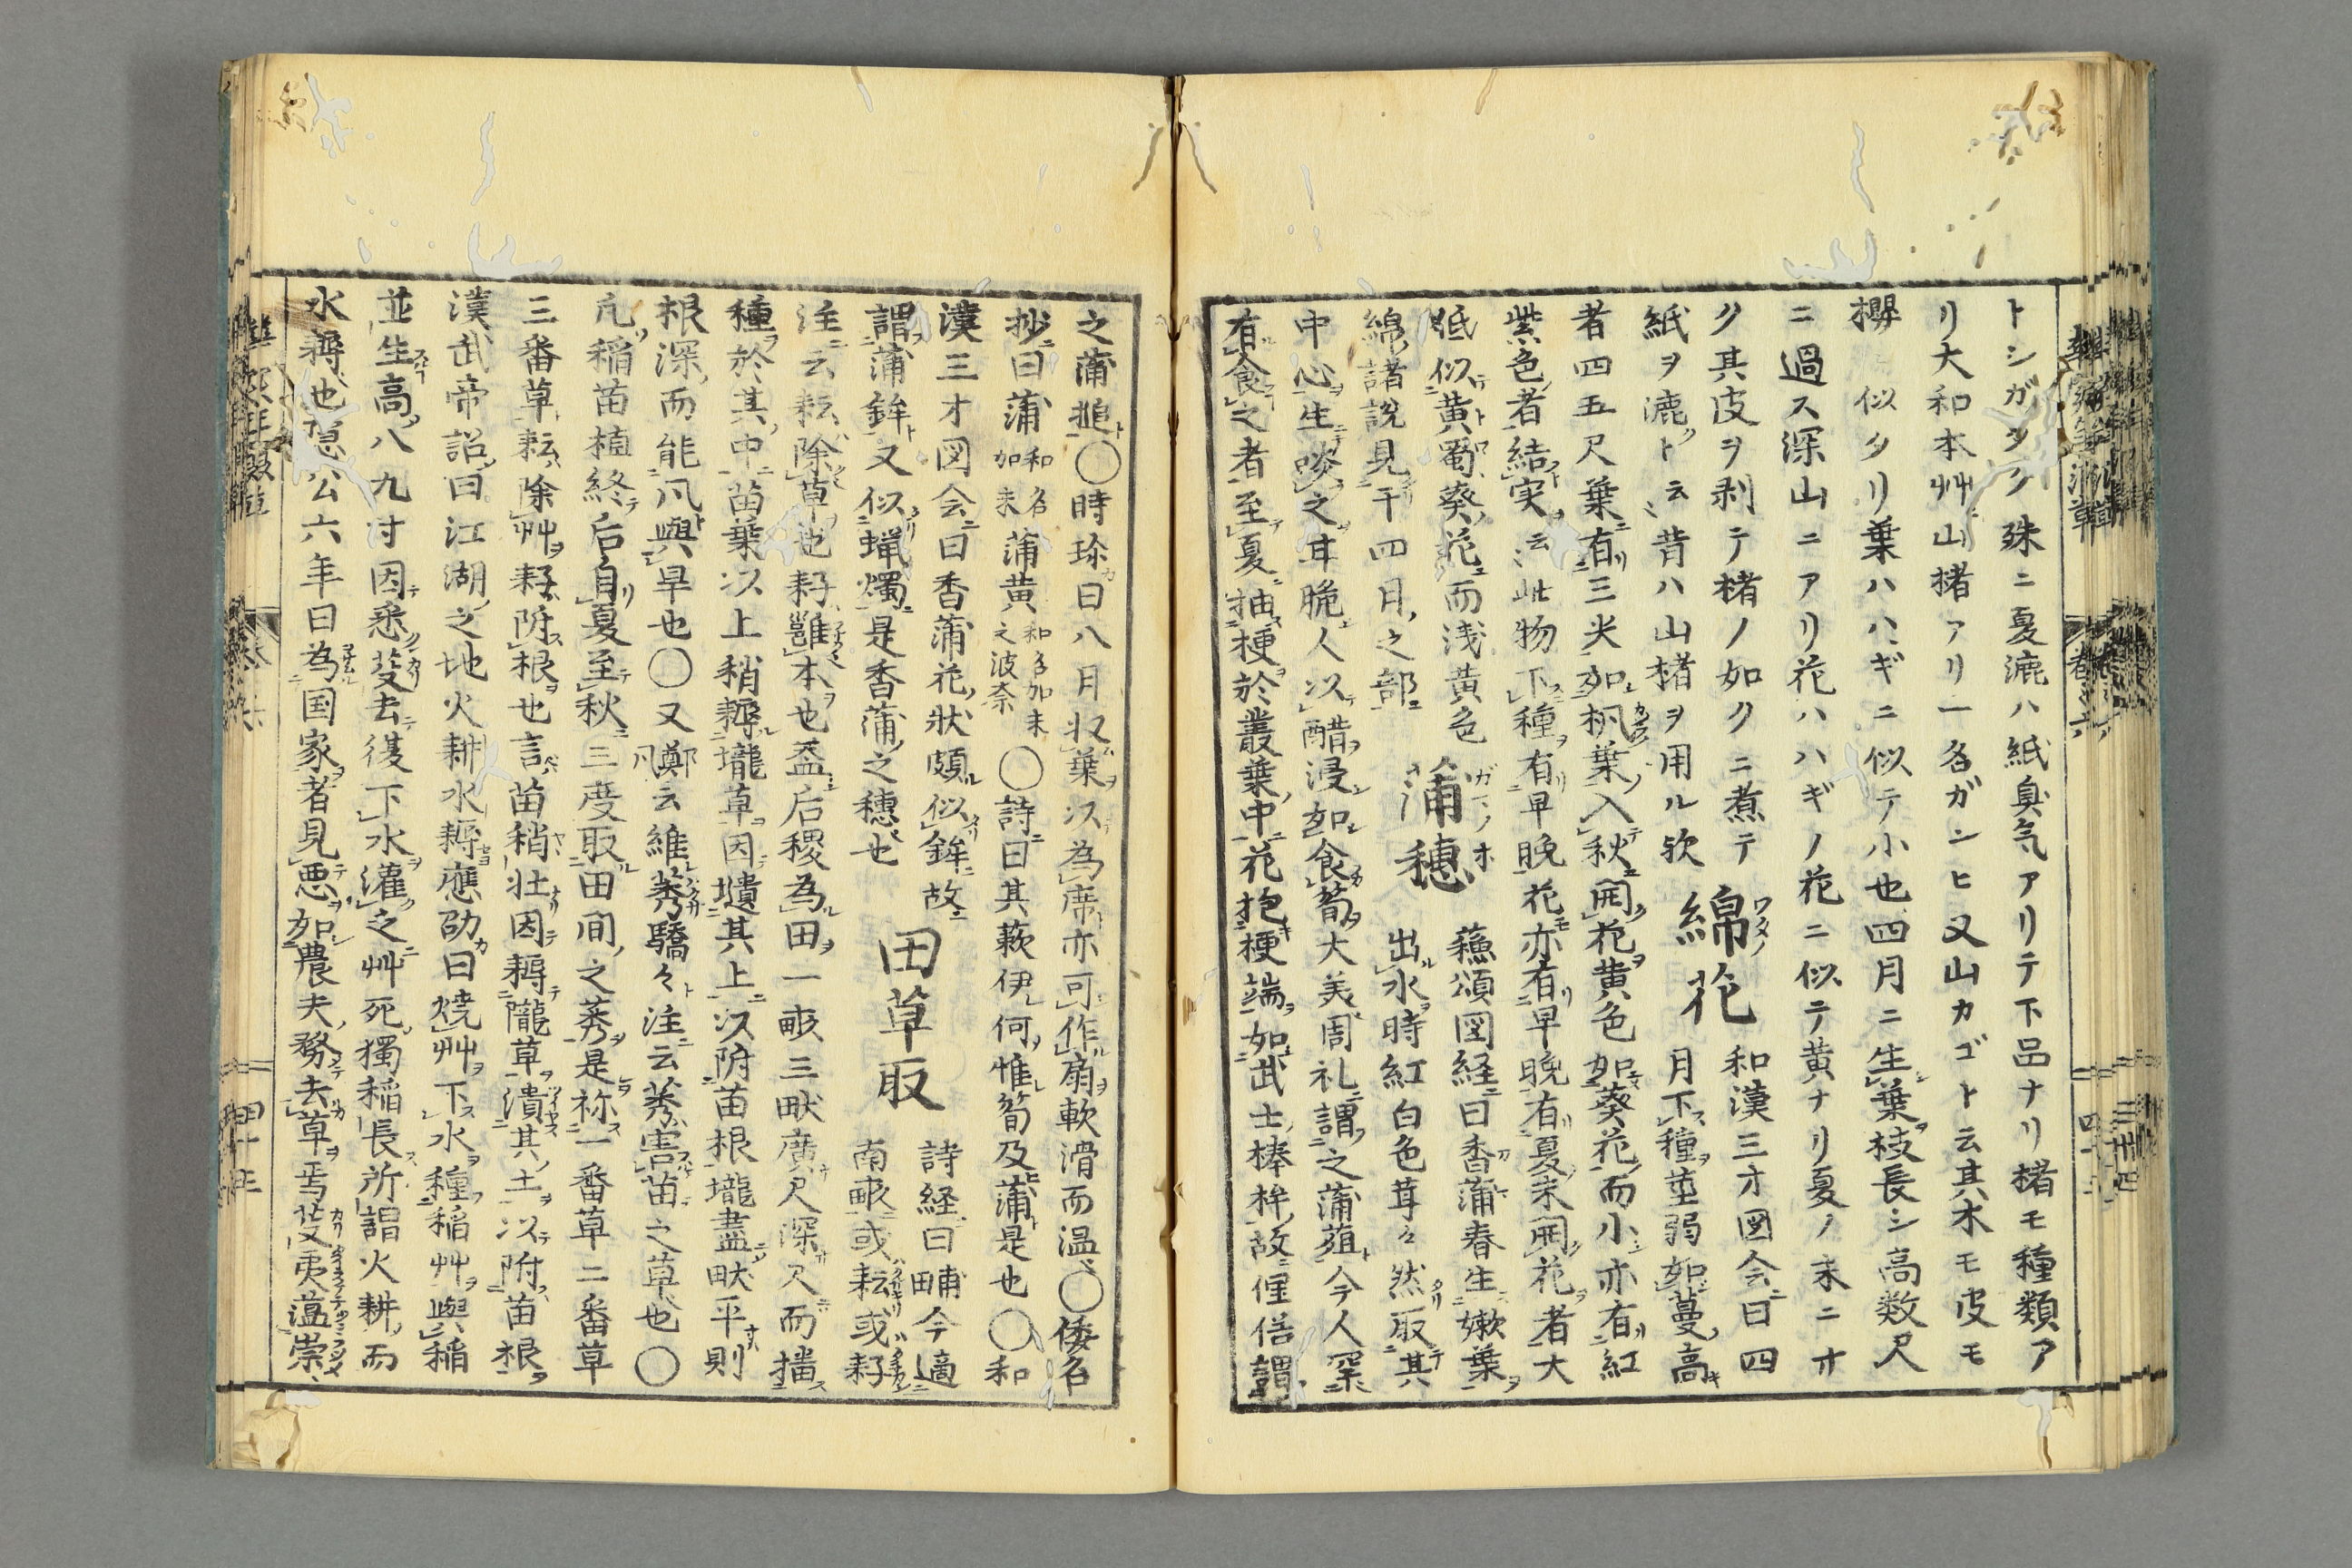 トシガタク殊ニ夏漉ハ紙臭気アリテ下品ナリ楮モ種類ア
リ大和本艸ニ山楮アリ一名ガンヒ又山カゴト云其木モ皮モ
櫻ニ似タリ葉ハハギニ似テ小也四月ニ生葉枝長シ高数尺
ニ過ス深山ニアリ花ハハギノ花ニ似テ黄ナリ夏ノ末ニオ
ク其皮ヲ剥テ楮ノ如クニ煮テ
紙ヲ漉ト云昔ハ山楮ヲ用ル欤
綿花
和漢三才図会曰四
月下種茎弱如蔓高
者四五尺葉有三尖如枫葉入秋開花黄色如葵花而小亦有紅
紫色者結実云此物下種有早晩花亦有早晩有夏末開花者大
低似黄蜀葵花而浅黄色
綿諸説見于四月之部
蒲穗
蘓頌図経曰香蒲春生嫩葉
出水時紅白色茸々然取其
中心生啖之甘脆人以醋浸如食筍大美周礼謂之蒲葅今人罕
有食之者至夏抽梗於叢葉中花抱梗端如武士棒杵故俚俗謂
之蒲槌○時珍曰八月收葉以為席亦可作扇軟滑而温○倭名
抄曰蒲和名加末蒲黄和名加末之波奈○詩曰其蔌伊何惟筍及蒲是也○和
漢三才図会曰香蒲花狀頗似鉾故
謂蒲鉾又似蝋燭是香蒲之穗也
田草取
詩経曰甫今適
南畝或耘或耔
注云耘除草也耔雝本也盖后稷為田一畝三畎廣尺深尺而播
種於其中苗葉以上稍耨壠草因壝其上以附苗根壠盡畎平則
根深而能風與旱也○又鄭風云維莠驕々注云莠害苗之草也○
凢稲苗植終后自夏至秋三度取田間之莠是祢一番草二番草
三番草耘除艸耔附根也言苗稍壮因耨隴草潰其土以附苗根
漢武帝詔曰江湖之地火耕水耨應劭曰焼艸下水種稲艸與稲
並生高八九寸因悉芟去復下水灌之艸死獨稲長所謂火耕而
水耨也隠公六年曰為国家者見悪如農夫務去草焉芟夷薀崇